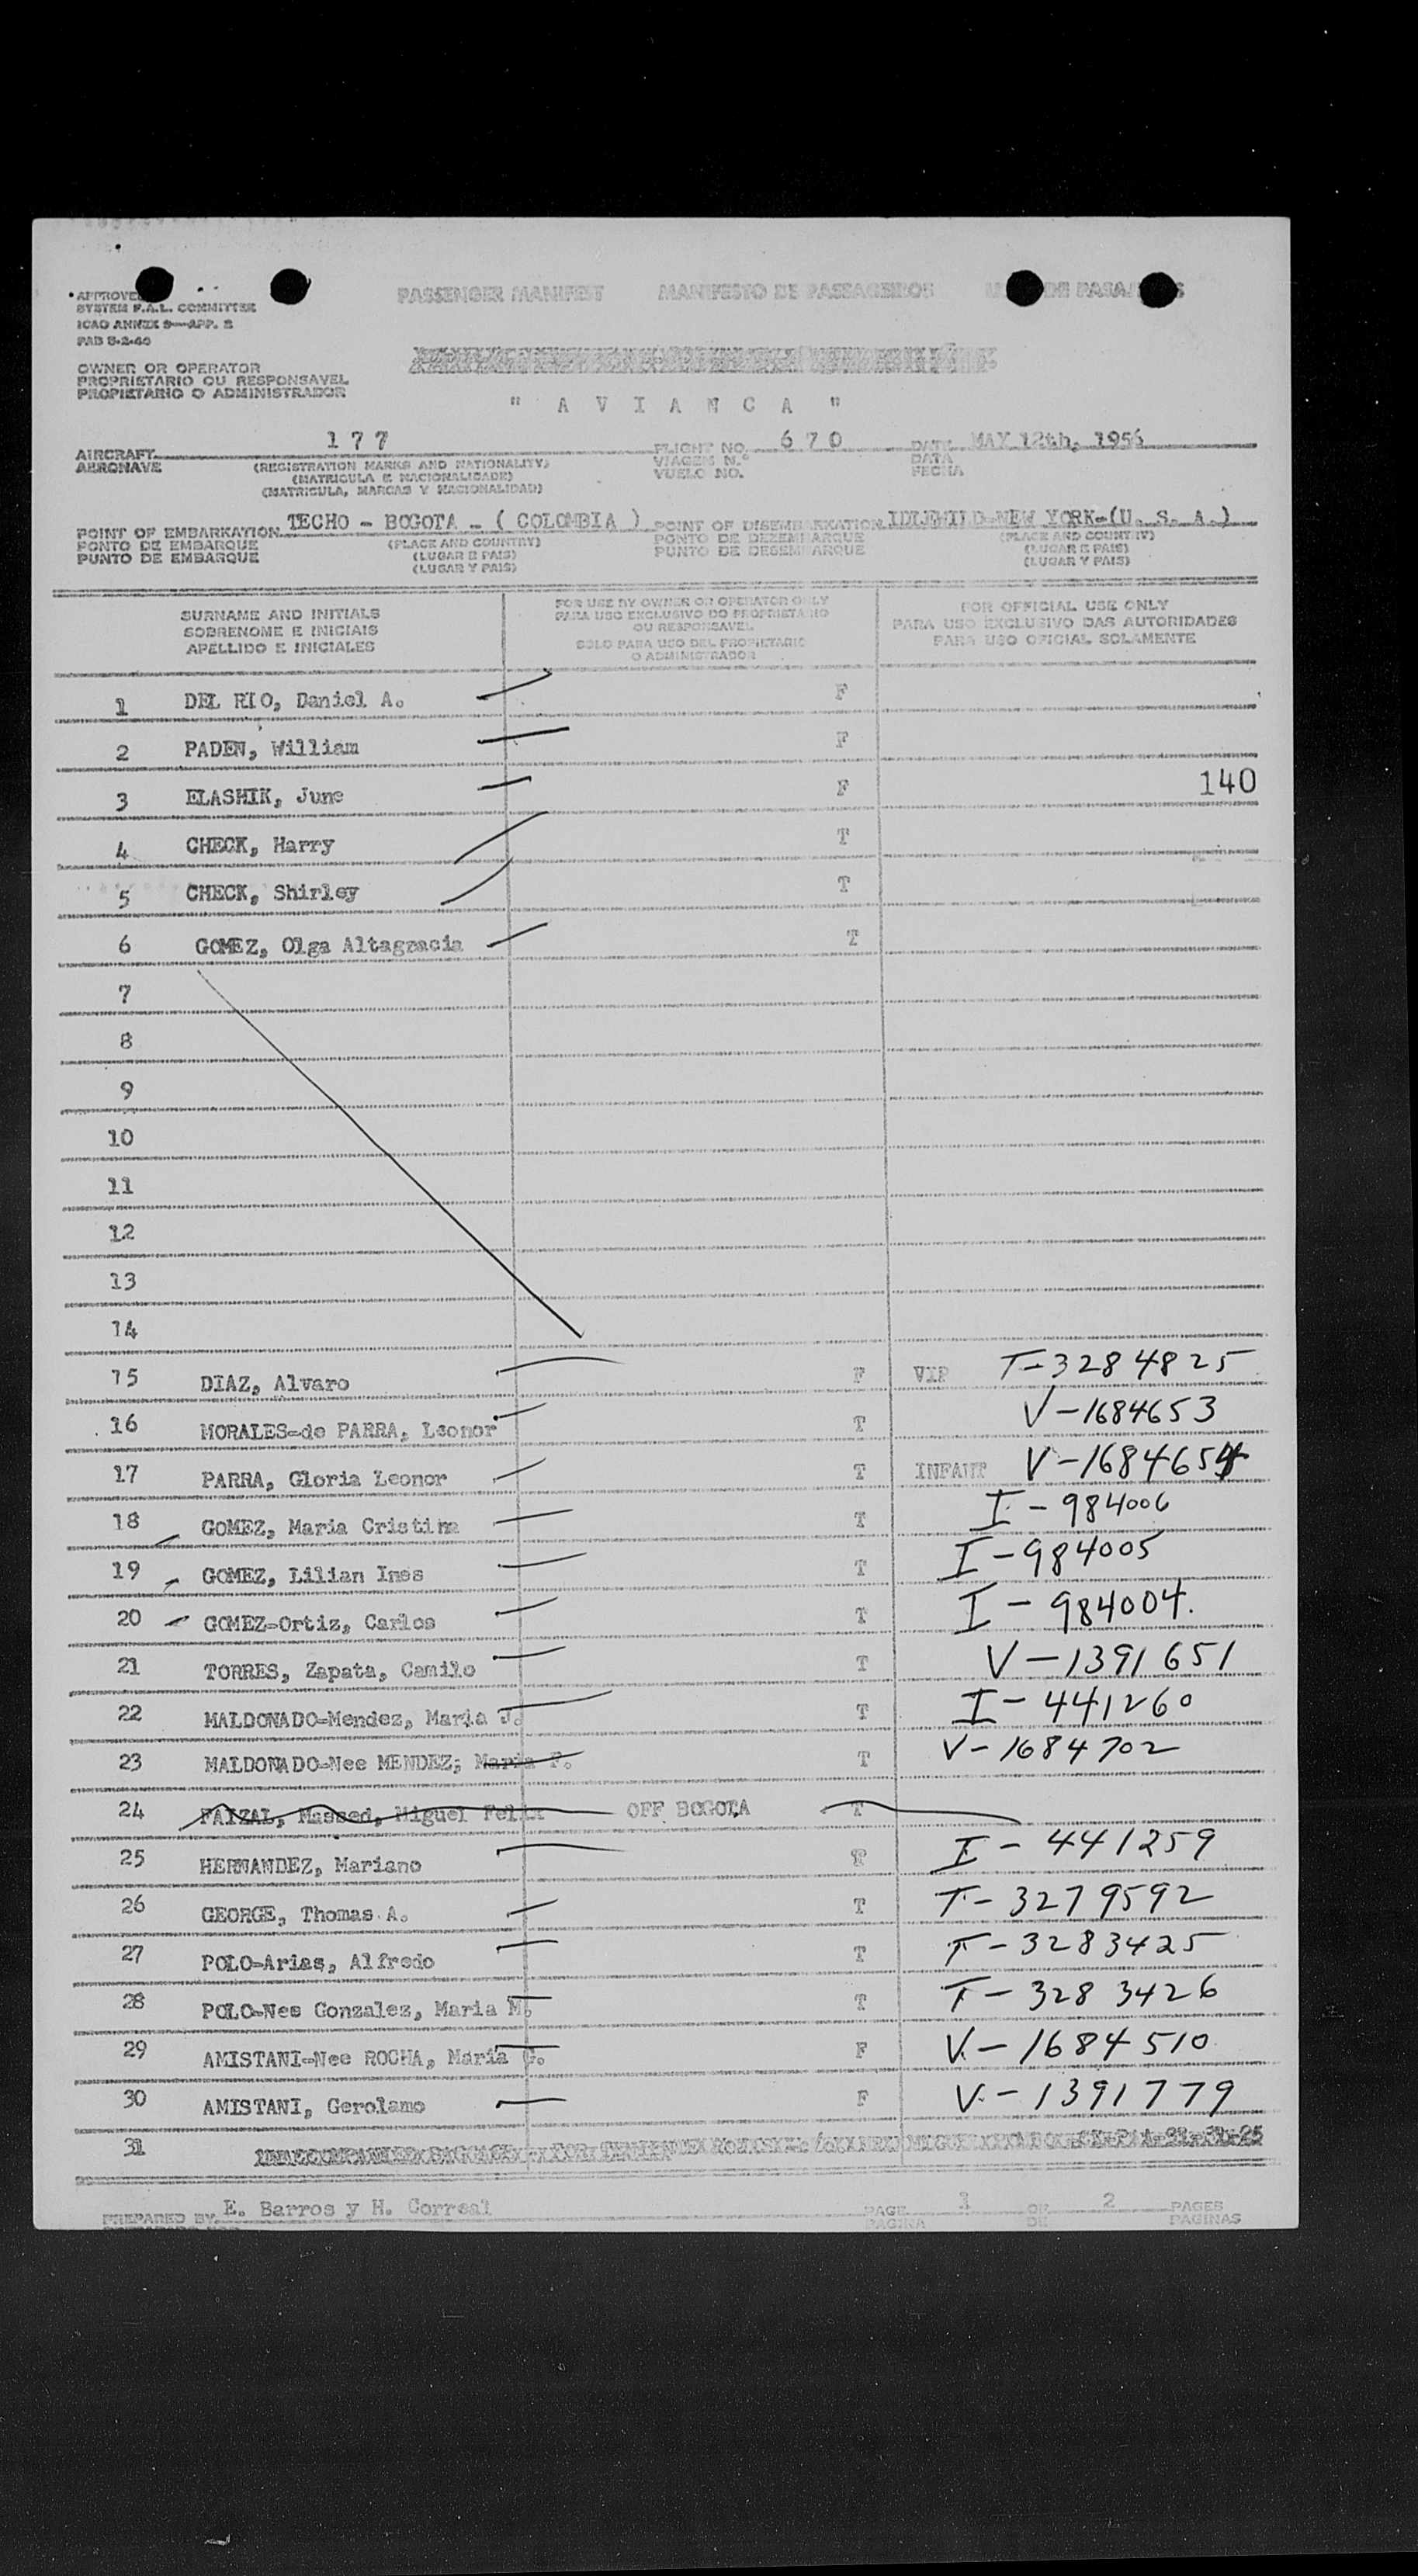 PASSENGER MANIFEST MANIFESTO DE PASSAGEIROS DE
APPROVED
SYSTEM F.A.L. COMMITTEE
ICAO ANNEX 9—APP. 2
PAB 5-2-40
OWNER OR OPERATOR
PROPRIETARIO OU RESPONSAVEL
PROPIETARIO O ADMINISTRADOR
" A V I A N C A "
AIRCRAFT 177 FLIGHT NO. 670 DATE MAY 12th, 1956
AERONAVE (REGISTRATION MARKS AND NATIONALITY) VIAGEM N.º DATA
(MATRICULA E NACIONALIDADE) VUELO NO. FECHA
(MATRICULA, MARCAS Y NACIONALIDAD)
POINT OF EMBARKATION TECHO - BOGOTA - ( COLOMBIA ) POINT OF DISEMBARKATION IDLEWILD-NEW YORK-(U. S. A.)
PONTO DE EMBARQUE (PLACE AND COUNTRY) PONTO DE DEZEMBARQUE (PLACE AND COUNTRY)
PUNTO DE EMBARQUE (LUGAR E PAIS) PUNTO DE DESEMBARQUE (LUGAR E PAIS)
(LUGAR Y PAIS) (LUGAR Y PAIS)
SURNAME AND INITIALS
SOBRENOME E INICIAIS
APELLIDO E INICIALES
FOR USE BY OWNER OR OPERATOR ONLY
PARA USO EXCLUSIVO DO PROPRIETARIO
OU RESPONSAVEL
SOLO PARA USO DEL PROPIETARIO
O ADMINISTRADOR
FOR OFFICIAL USE ONLY
PARA USO EXCLUSIVO DAS AUTORIDADES
PARA USO OFICIAL SOLAMENTE
1 DEL RIO, Daniel A. F
2 PADEN, William F
3 ELASHIK, June F 140
4 CHECK, Harry T
5 CHECK, Shirley T
6 GOMEZ, Olga Altagracia T
7
8
9
10
11
12
13
14
15 DIAZ, Alvaro F VIP T-3284825
16 MORALES-de PARRA, Leonor T V-1684653
17 PARRA, Gloria Leonor T INFANT V-1684654
18 GOMEZ, Maria Cristina T I-984006
19 GOMEZ, Lilian Ines T I-984005
20 GOMEZ-Ortiz, Carlos T I-984004.
21 TORRES, Zapata, Camilo T V-1391651
22 MALDONADO-Mendez, Maria J. T I-441260
23 MALDONADO-Nee MENDEZ; Maria F. T V-1684702
24 FAIZAL, Massed, Miguel Felix OFF BOGOTA T
25 HERNANDEZ, Mariano I-441259
26 GEORGE, Thomas A. T T-3279592
27 POLO-Arias, Alfredo T T-3283425
28 POLO-Nee Gonzalez, Maria M. T T-3283426
29 AMISTANI-Nee ROCHA, Maria G. F V-1684510
30 AMISTANI, Gerolamo F V-1391779
31
PREPARED BY E. Barros y H. Correal PAGE 1 OF 2 PAGES
PAGINA DE PAGINAS